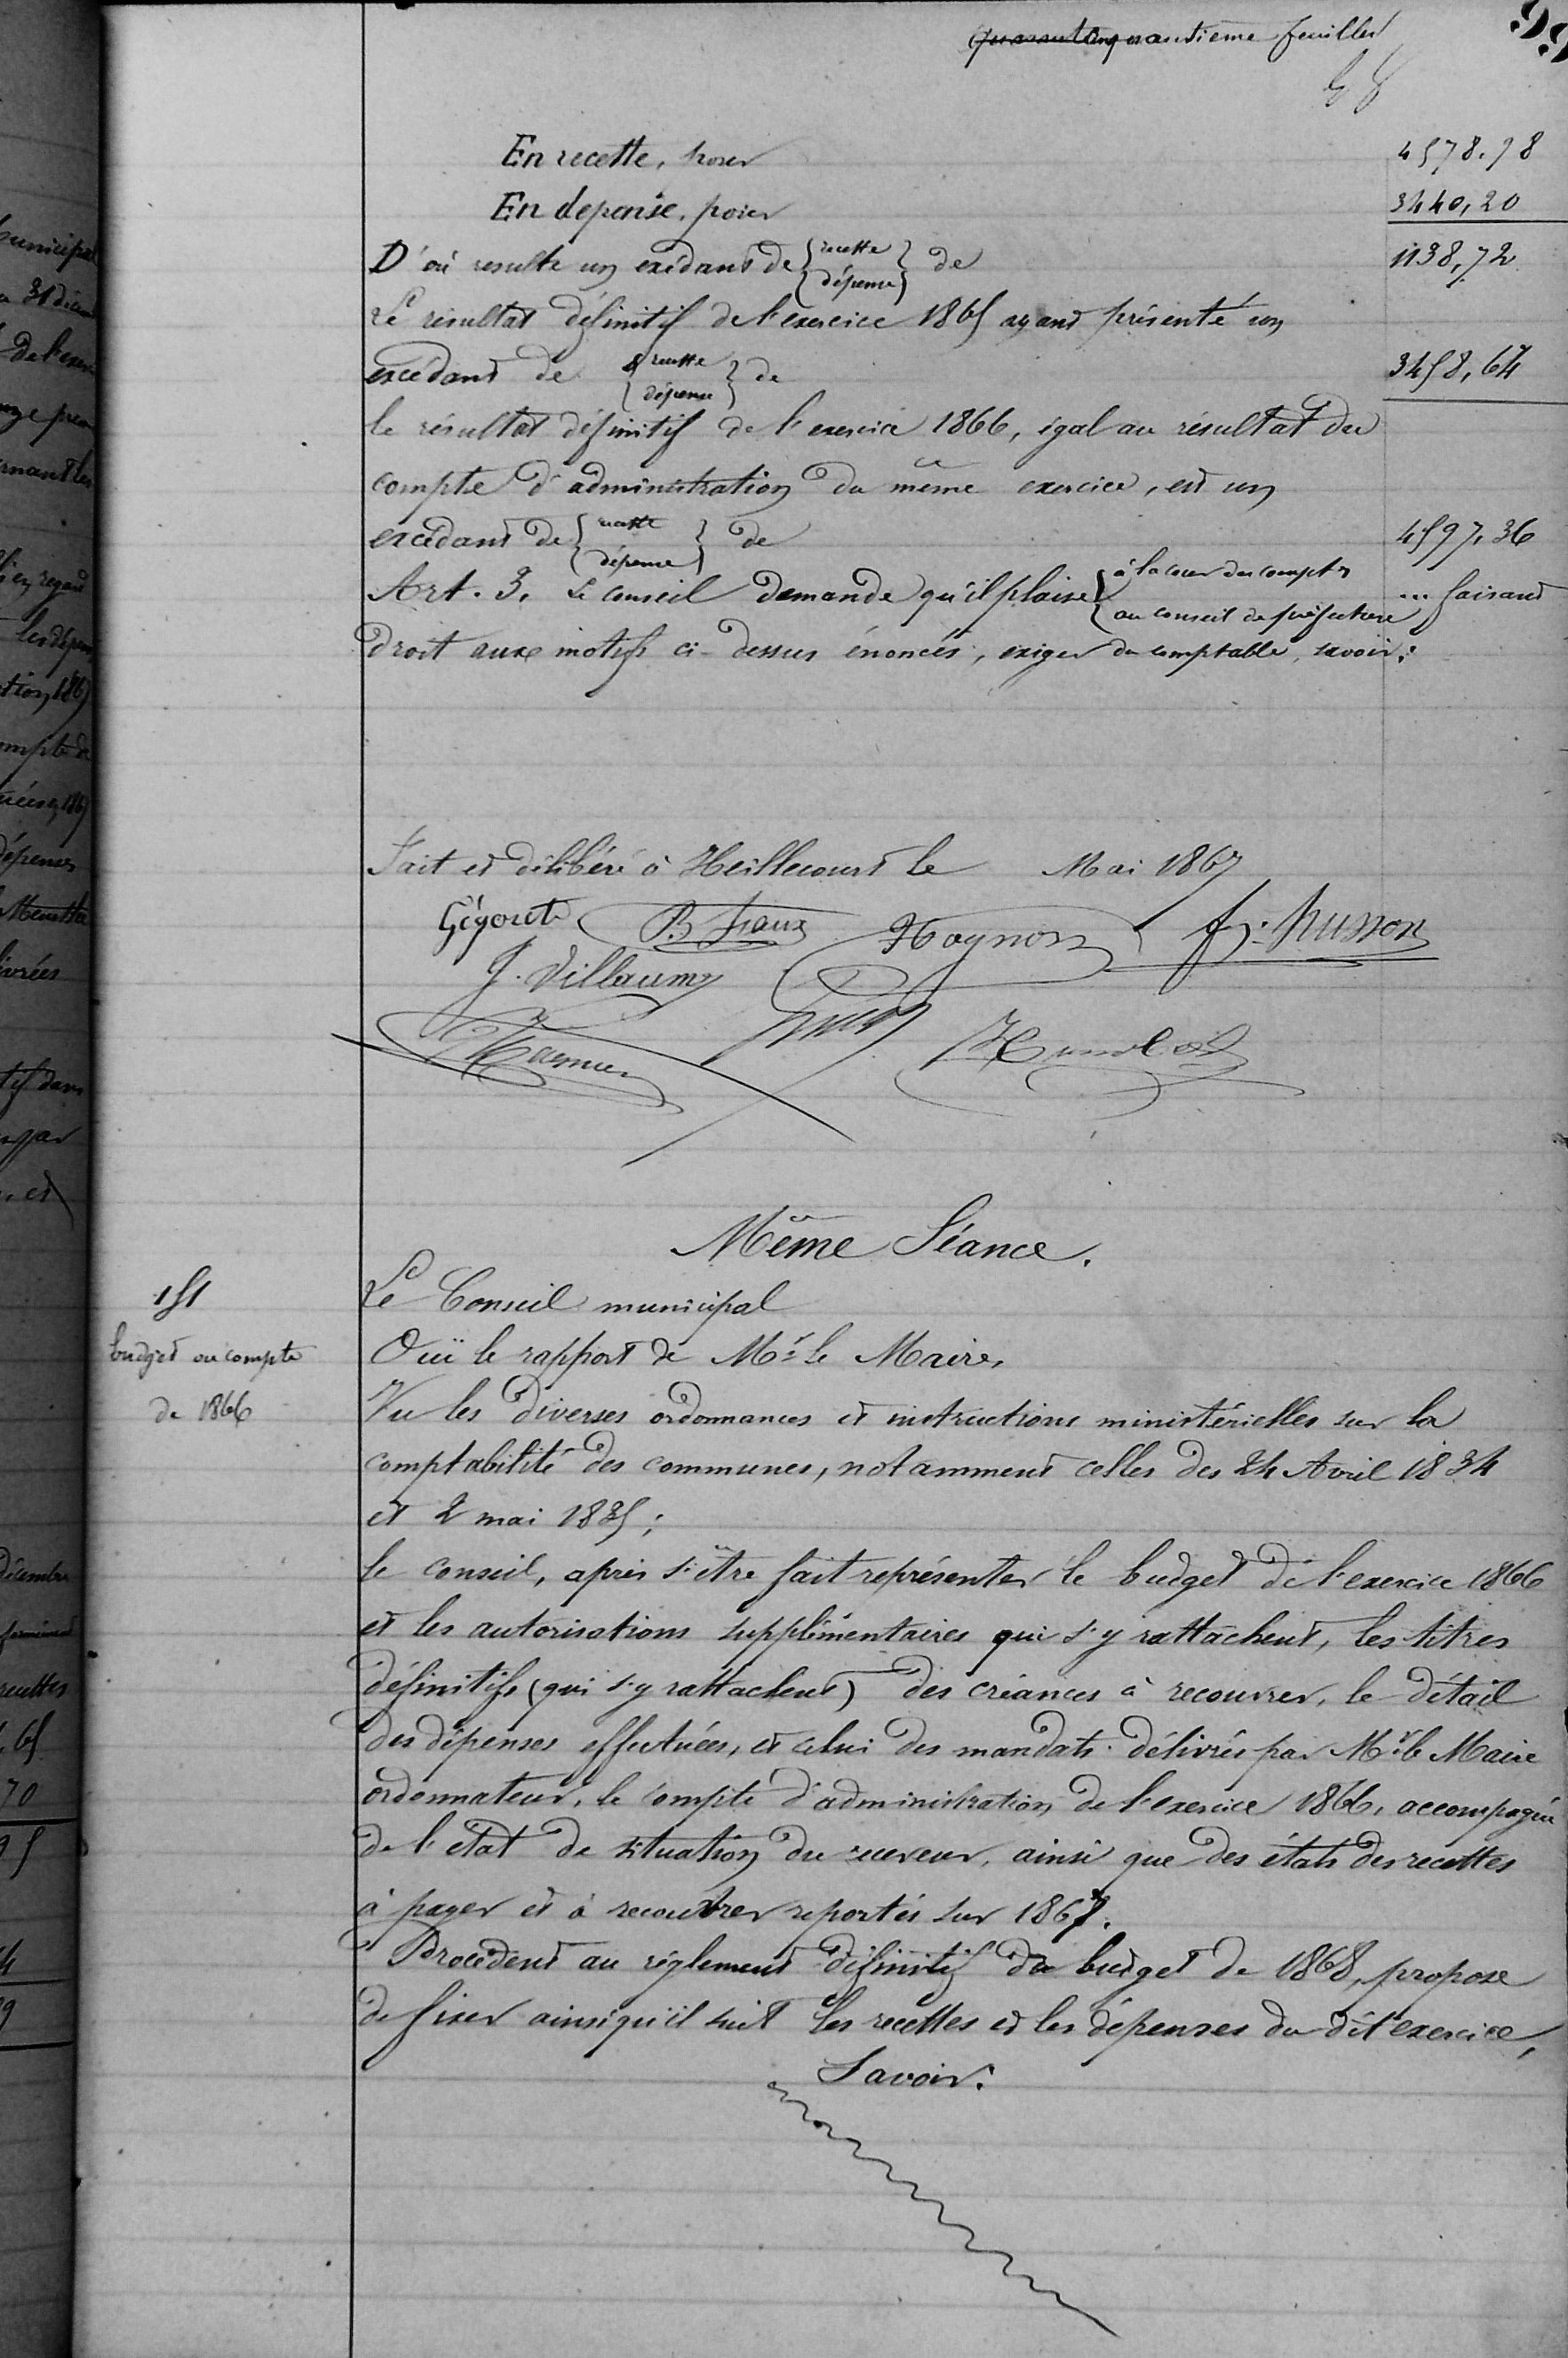 feuillet
En recette, poser 4578.98
En depense, poser 3440,20
D'où resulte un exédant de {recette / dépense} de 1138,72
Le résultat définitif de l'exercice 1865 ayant présenté un
excédant de {recette / dépense} de 3458,64
le résultat définitif de l'exercice 1866, égal au résultat du
compte d'administration du même exercice, est un
excédant de {recette / dépense} de 4597,36
Art. 3. Le conseil demande qu'il plaise {à la cour des comptes / au conseil de préfecture ... faisant
droit aux motifs ci-dessus énoncés, exiger du comptable, savoir:
Fait et délibéré à Heillecourt le Mai 1867
Gégoret B Hoynon fr. husson
J. Villaumy
Même Séance.
151
budget ou compte
de 1866
Le Conseil municipal
Ouï le rapport de Mr le Maire,
Vu les diverses ordonnances et instructions ministérielles sur la
comptabilité des communes, notamment celles des 24 Avril 1834
et 2 mai 1835;
le conseil, après s'être fait représenter le budget de l'exercice 1866
et les autorisations supplémentaires qui s'y rattachent, les titres
définitifs (qui s'y rattachent) des créances à recouvrer, le détail
des dépenses effectuées, et celui des mandats délivrés par Mr le Maire
ordonnateur, le compte d'administration de l'exercice 1866, accompagné
de l'état de situation du receveur, ainsi que des états des recettes
à payer et à recouvrer reportés sur 1867.
Procédent au réglement définitif du budget de 1868, propose
de fixer ainsi qu'il suit les recettes et les dépenses du dit exercice,
Savoir: